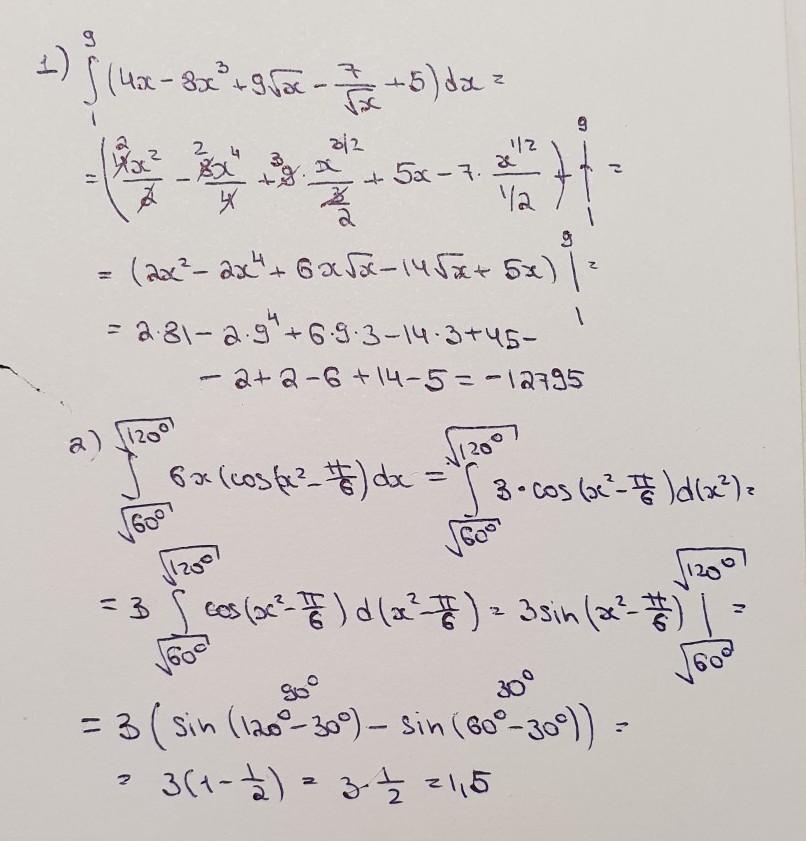 1) ∫₁⁹ (4x - 8x³ + 9√x - 7/√x + 5) dx =
= (4x²/2 - 8x⁴/4 + 9 · x^(3/2)/(3/2) + 5x - 7 · x^(1/2)/(1/2)) |₁⁹ =
= (2x² - 2x⁴ + 6x√x - 14√x + 5x) |₁⁹ =
= 2·81 - 2·9⁴ + 6·9·3 - 14·3 + 45 -
- 2 + 2 - 6 + 14 - 5 = -12795
2) ∫_{√60°}^{√120°} 6x (cos(x² - π/6) dx = ∫_{√60°}^{√120°} 3·cos(x² - π/6) d(x²) =
= 3 ∫_{√60°}^{√120°} cos(x² - π/6) d(x² - π/6) = 3 sin(x² - π/6) |_{√60°}^{√120°} =
90° 30°
= 3 (sin (120° - 30°) - sin (60° - 30°)) =
= 3(1 - 1/2) = 3·1/2 = 1,5